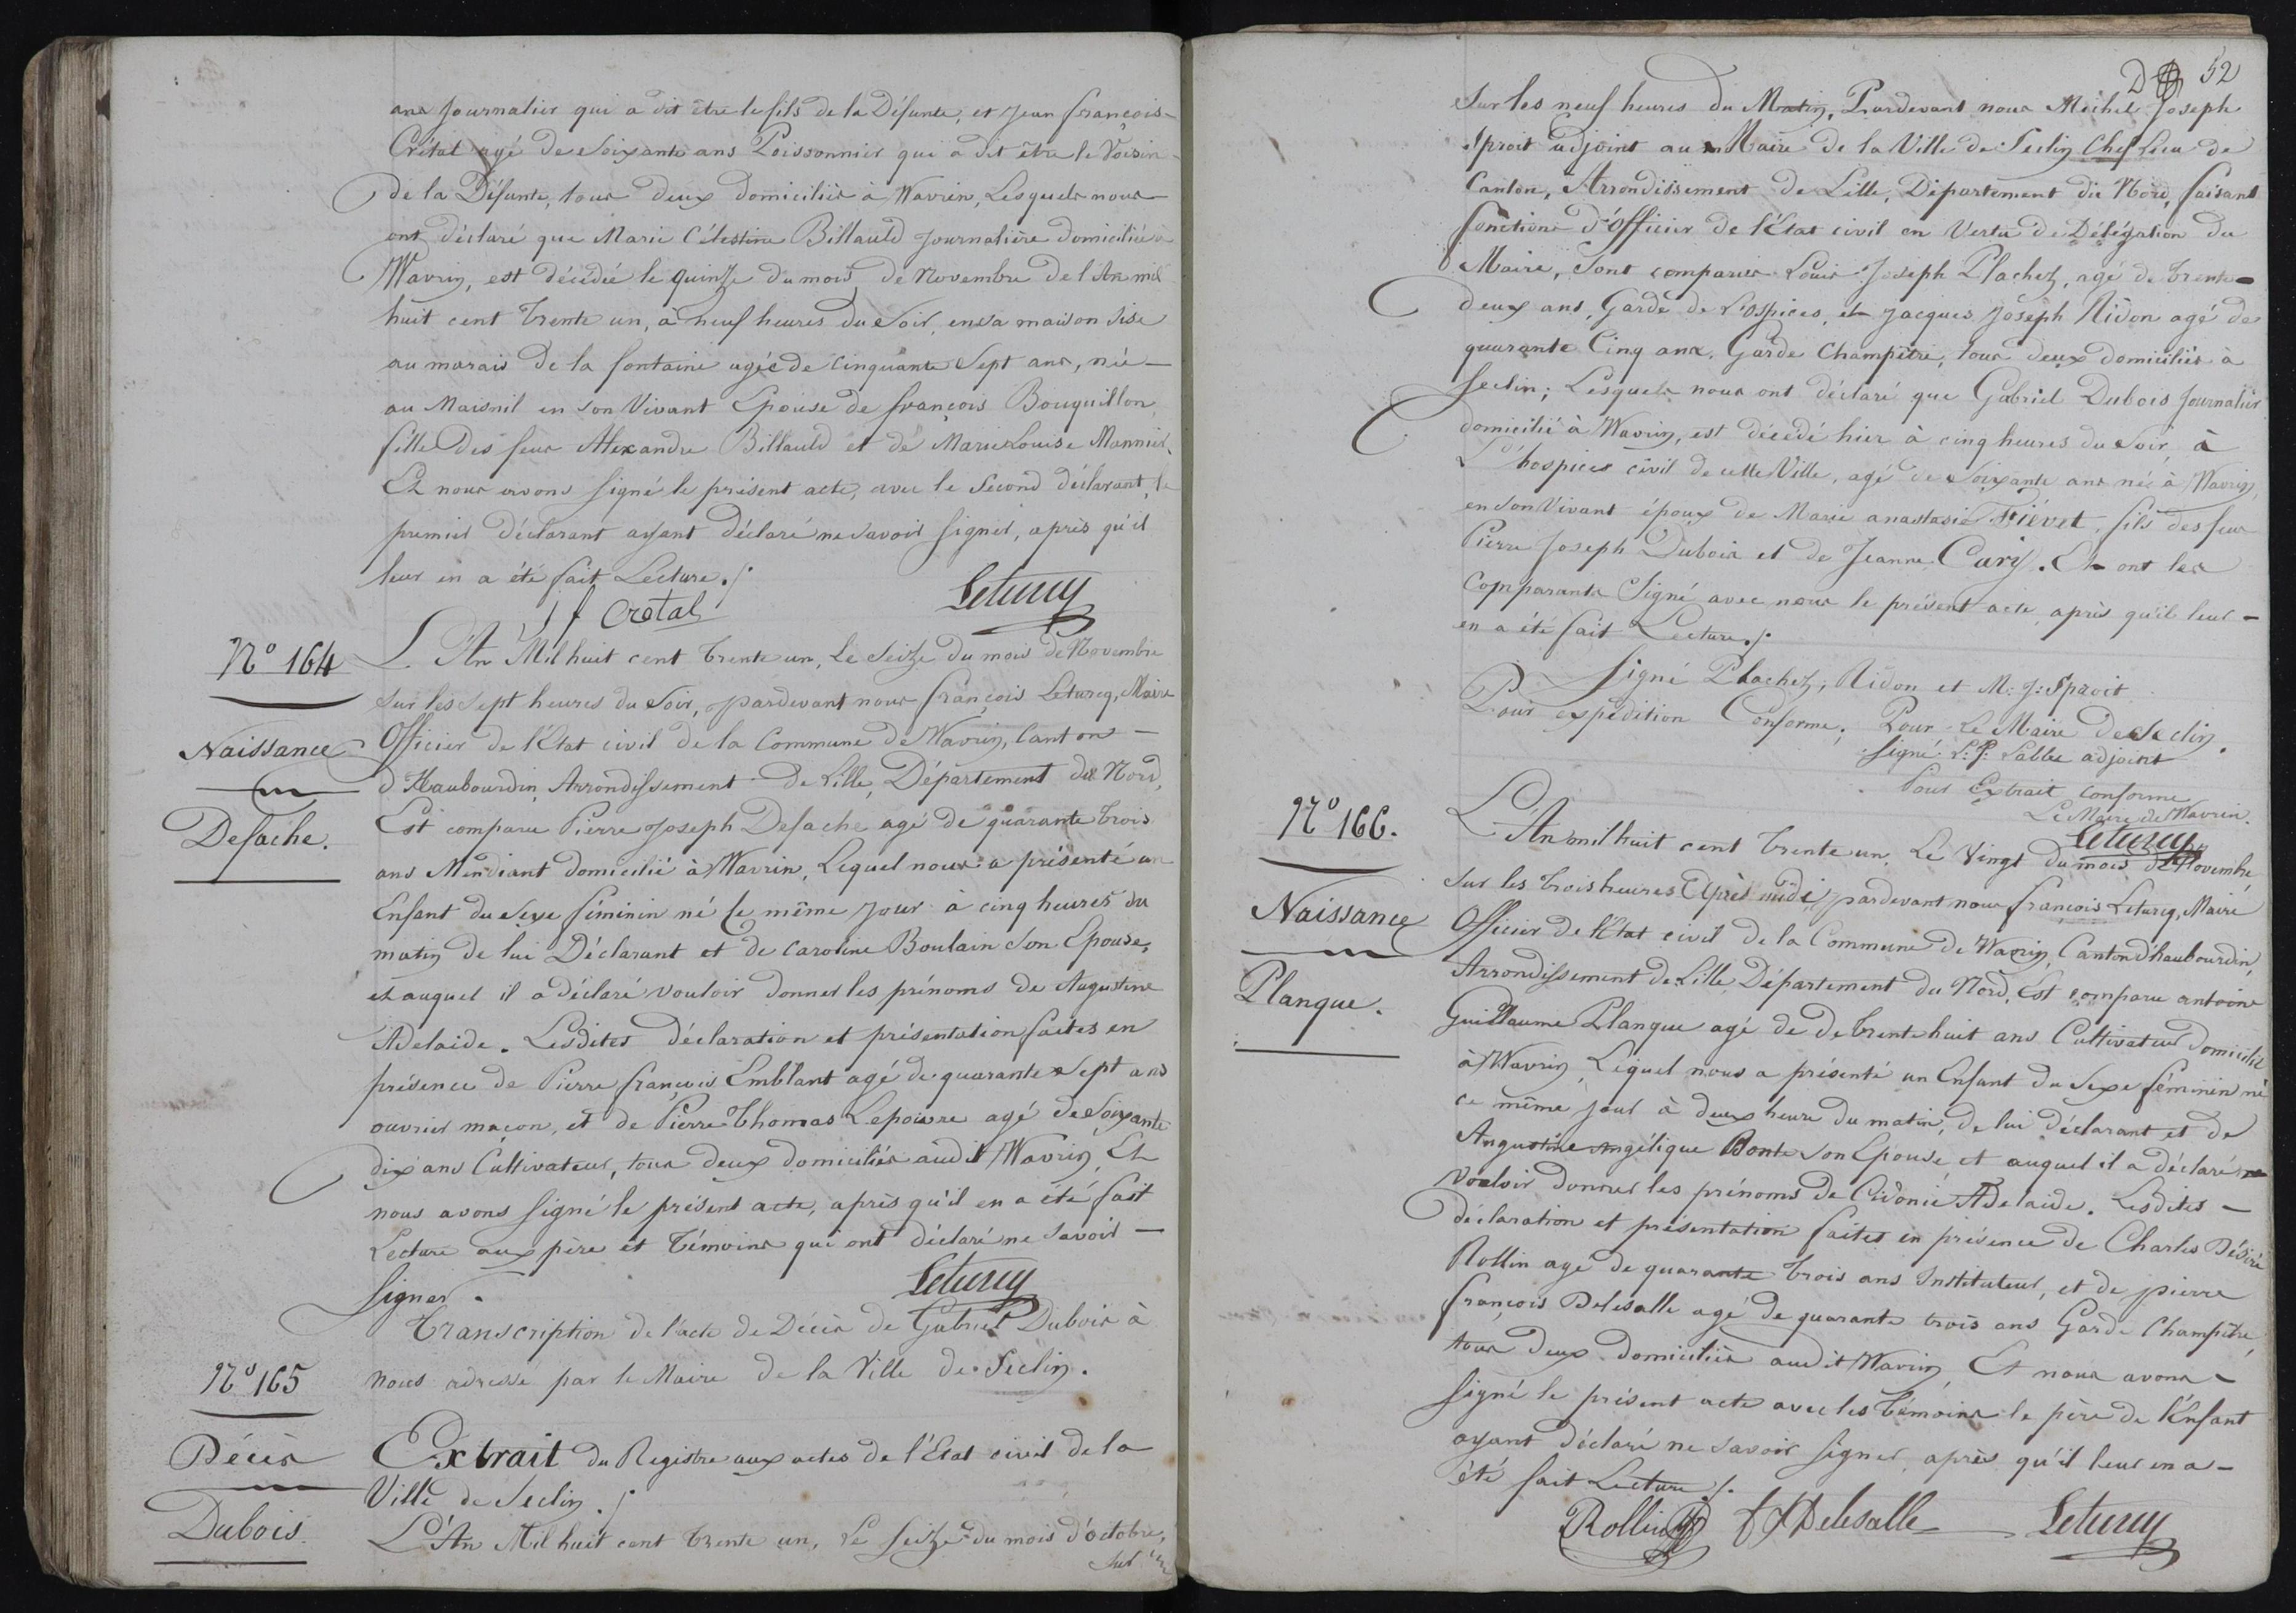 ans Journalier qui a dit être le fils de la Défunte, et Jean françois
Crétal agé de Soixante ans Poissonnier qui a dit être le Voisin
de la Défunte, tous deux domiciliés à Wavrin, Lesquels nous
ont déclaré que Marie Célestine Billauld Journalière domiciliée à
Wavrin, est décédée le quinze du mois de Novembre de l'An mil
huit cent trente un, à neuf heures du Soir, en sa maison sise
au marais de la fontaine agée de cinquante Sept ans, née
au Maisnil en son Vivant Epouse de françois Bouquillon,
fille des feus Alexandre Billauld et de Marie Louise Monnier.
Et nous avons signé le présent acte, avec le Second déclarant, le
premier déclarant ayant déclaré ne savoir signer, après qu'il
leur en a été fait Lecture ./.
J f Cretal Leturcq
N° 164
Naissance
Defache.
L'An Mil huit cent trente un, Le Seize du mois de Novembre
sur les Sept heures du Soir, pardevant nous françois Leturcq, Maire
Officier de l'Etat civil de la Commune de Wavrin, Canton
d'Haubourdin Arrondissement de Lille, Département du Nord,
Est comparu Pierre Joseph Defache agé de quarante trois
ans Mendiant domicilié à Wavrin, Lequel nous a présenté un
Enfant du Sexe féminin né ce même Jour à cinq heures du
matin de lui Déclarant et de Caroline Boulain son Epouse,
et auquel il a déclaré vouloir donner les prénoms de Augustine
Adelaide. Lesdites déclaration et présentation faites en
présence de Pierre françois Emblant agé de quarante Sept ans
ouvrier maçon, et de Pierre Thomas Lepoivre agé de Soixante
dix ans Cultivateur, tous deux domiciliés audit Wavrin, Et
nous avons signé le présent acte, après qu'il en a été fait
Lecture aux père et témoins qui ont déclaré ne savoir
signer. Leturcq
N° 165
Décès
Dubois.
Transcription de l'acte de Décès de Gabriel Dubois à
nous adressé par le Maire de la Ville de Seclin.
Extrait du Registre aux actes de l'Etat civil de la
Ville de Seclin ./.
L'An Mil huit cent trente un, Le Seize du mois d'octobre,
Sur les
52
Sur les neuf heures du Matin, Pardevant nous Michel Joseph
Sproit adjoint au Maire de la Ville de Seclin Chef Lieu de
Canton, Arrondissement de Lille, Département du Nord, faisant
fonctions d'Officier de l'Etat civil en Vertu de Délégation du
Maire, Sont comparus Louis Joseph Plachez, agé de trente
deux ans, Garde de L'ospices, et Jacques Joseph Nidon agé de
quarante Cinq ans, Garde Champêtre, tous deux domiciliés à
Seclin; Lesquels nous ont déclaré que Gabriel Dubois Journalier
domicilié à Wavrin, est décédé hier à cinq heures du Soir, à
L'hospices civil de cette Ville, agé de Soixante ans né à Wavrin,
en son Vivant époux de Marie anastasie Fiévet, fils des feus
Pierre Joseph Dubois et de Jeanne Cary. Et ont les
Comparants Signé avec nous le présent acte, après qu'il leur
en a été fait Lecture ./.
Signé Plachez, Nidon et M: J: Sproit
Pour expédition Conforme, Pour Le Maire de Seclin.
signé L: P: Labbe adjoint
Pour Extrait conforme
Le Maire de Wavrin.
Leturcq
N° 166.
Naissance
Planque.
L'An mil huit cent trente un, Le Vingt du mois de Novembre,
sur les trois heures Après midi, pardevant nous françois Leturcq, Maire
Officier de l'Etat civil de la Commune de Wavrin, Canton d'haubourdin,
Arrondissement de Lille, Département du Nord, Est comparu antoine
Guillaume Planque agé de de trente huit ans Cultivateur domicilié
à Wavrin, Lequel nous a présenté un Enfant du Sexe féminin né
ce même Jour à deux heure du matin, de lui déclarant et de
Angustine angélique Bonte son Epouse, et auquel il a déclaré
vouloir donner les prénoms de Cidonie Adelaide. Lesdites
déclaration et présentation faites en présence de Charles Désiré
Rollin agé de quarante trois ans Instituteur, et de pierre
françois Delesalle agé de quarante trois ans Garde Champêtre,
tous deux domiciliés audit Wavrin, Et nous avons
signé le présent acte avec les témoins le père de l'Enfant
ayant déclaré ne savoir signer, après qu'il leur en a
été fait Lecture ./.
Rollin Delesalle Leturcq